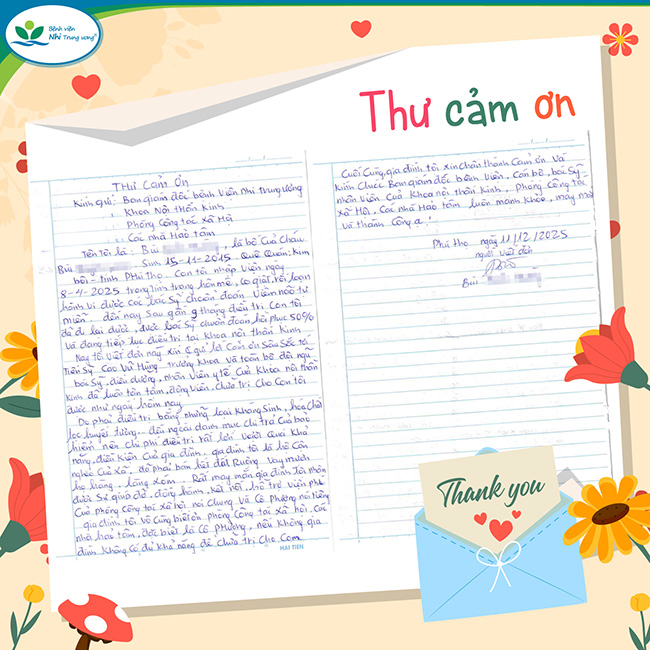 Bệnh viện
Nhi Trung ương
Thư cảm ơn
THƯ CẢM ƠN
Kính gửi: Ban giám đốc bệnh viện Nhi trung ương
Khoa Nội thần kinh
Phòng Công tác xã hội
Các nhà Hảo tâm
Tên tôi là: Bùi là bố của cháu
Bùi Sinh 15-11-2015 Quê Quán: Kim
bôi - tỉnh Phú thọ. Con tôi nhập viện ngày
8-4-2025 trong tình trạng hôn mê, co giật, rối loạn
hành vi được các bác sỹ chẩn đoán viêm não tự
miễn. đến nay sau gần 9 tháng điều trị con tôi
đã đi lại được, được bác sỹ chuẩn đoán hồi phục 50%
và đang tiếp tục điều trị tại khoa nội thần kinh
Nay tôi viết đơn này xin gửi lời cảm ơn sâu sắc tới
Tiến sỹ Cao Vũ Hùng trưởng khoa và toàn bộ đội ngũ
bác sỹ, điều dưỡng, nhân viên y tế của khoa nội thần
kinh đã luôn tận tâm, động viên, chữa trị cho con tôi
được như ngày hôm nay.
Do phải điều trị bằng những loại kháng sinh, hóa chất
lọc huyết tương.. đều ngoài danh mục chi trả của bảo
hiểm nên chi phí điều trị rất lớn vượt quá khả
năng, điều kiện của gia đình. gia đình tôi là hộ cận
nghèo của xã. đã phải bán hết đất ruộng vay mượn
họ hàng, làng xóm.. Rất may mắn gia đình tôi nhận
được sự giúp đỡ, đồng hành, kết nối, hỗ trợ viện phí
của phòng công tác xã hội nói chung và cô Phương nói riêng
gia đình tôi vô cùng biết ơn phòng công tác xã hội, các
nhà hảo tâm, đặc biệt là cô Phương, nếu không gia
đình không có đủ khả năng để chữa trị cho con
HẢI TIẾN
Cuối cùng, gia đình tôi xin chân thành cảm ơn và
kính chúc Ban giám đốc bệnh viện, cán bộ, bác sỹ
nhân viên của khoa nội thần kinh, phòng công tác
xã hội, các nhà Hảo tâm luôn mạnh khỏe, may mắn
và thành công ạ!
Phú thọ, ngày 11/12/2025
người viết đơn
Bùi
Thank you